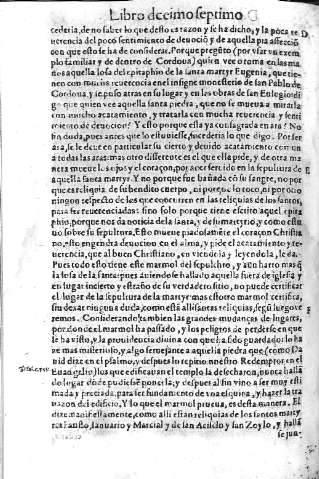 Libro decimo septimo
cederia, de no saber lo que desto es razon y se ha dicho, y la poca re
uerencia del poco sentimiento de deuoció y de aquella pia affecció
con que esto se ha de considerar. Porque pregũto (por vsar vn exem
plo familiar y de dentro de Cordoua) quien vee o toma en las ma
nos aquella losa del epitaphio de la santa martyr Eugenia, que tie
nen con mucha reuerencia en el insigne monesterio de san Pablo de
Cordoua, y se puso atras en su lugar y en las obras de san Eulogio di
go que quien vee aquella santa piedra, que no se mueua a mirarla
con mucho acatamiento, y tratarla con mucha reuerencia y senti
miento de deuoció? Y esto porque ella ya consagrada en ara? No
ha duda, pues antes que lo estuuiesse, sucederia lo que digo. Por ser
ara, se le deue en particular su cierto y deuido acatamiento comun
a todas las aras: mas otro differente es el que ella pide, y de otra ma
nera mueue los ojos y el coraçon, por auer seruido en la sepultura de
aquella santa martyr. Y no porque fue bañada cõ su sangre, no por
que es reliquia de su bendito cuerpo, ni porque lo toco, ni por otro
ningun respecto de los que concurren en las reliquias de los santos,
para ser reuerenciadas: sino solo porque tiene escrito aquel epita
phio, porque nos da noticia de la santa, y de su martyrio, y como estu
uo sobre su sepultura. Esto mueue piadosamēte el coraçon Christia
no, esto engendra deuocion en el alma, y pide el acatamiento y re
uerencia, que al buen Christiano, en viendola y leyendola, le da.
Pues todo esto tiene este marmol del sepulchro, y aun harto mas q̃
la losa de la santa: pues auiendose hallado aquella fuera de iglesia y
en lugar incierto y estraño de su verdadero sitio, no puede certificar
el lugar de la sepultura de la martyr: mas este otro marmol certifica,
sin dexar ninguna duda, como estã alli las santas reliquias, segũ luego ve
remos. Considerando tambien las grandes mudanças de lugares,
por donde el marmol ha passado, y los peligros de perderse en que
se ha visto, y la prouidencia diuina con que ha sido guardado: lo ha
ze mas misterioso, y algo semejante a aquella piedra que (como Da
uid dize en el psalmo, y despues lo repitio nuestro Redemptor en el
Euangelio) los que edificauan el templo la desecharon, nunca halla
do lugar dõde pudiesse ponella; y despues al fin vino a ser muy esti
mada y preciada, para ser fundamento de vna esquina, y hazer la tra
uazon del edificio. Y lo que el marmol prueua, es desta manera. El
dize manifiestamente, como alli estan reliquias de los santos marty
res Fausto, Ianuario y Marcial y de san Aciclo y san Zoylo, y halla